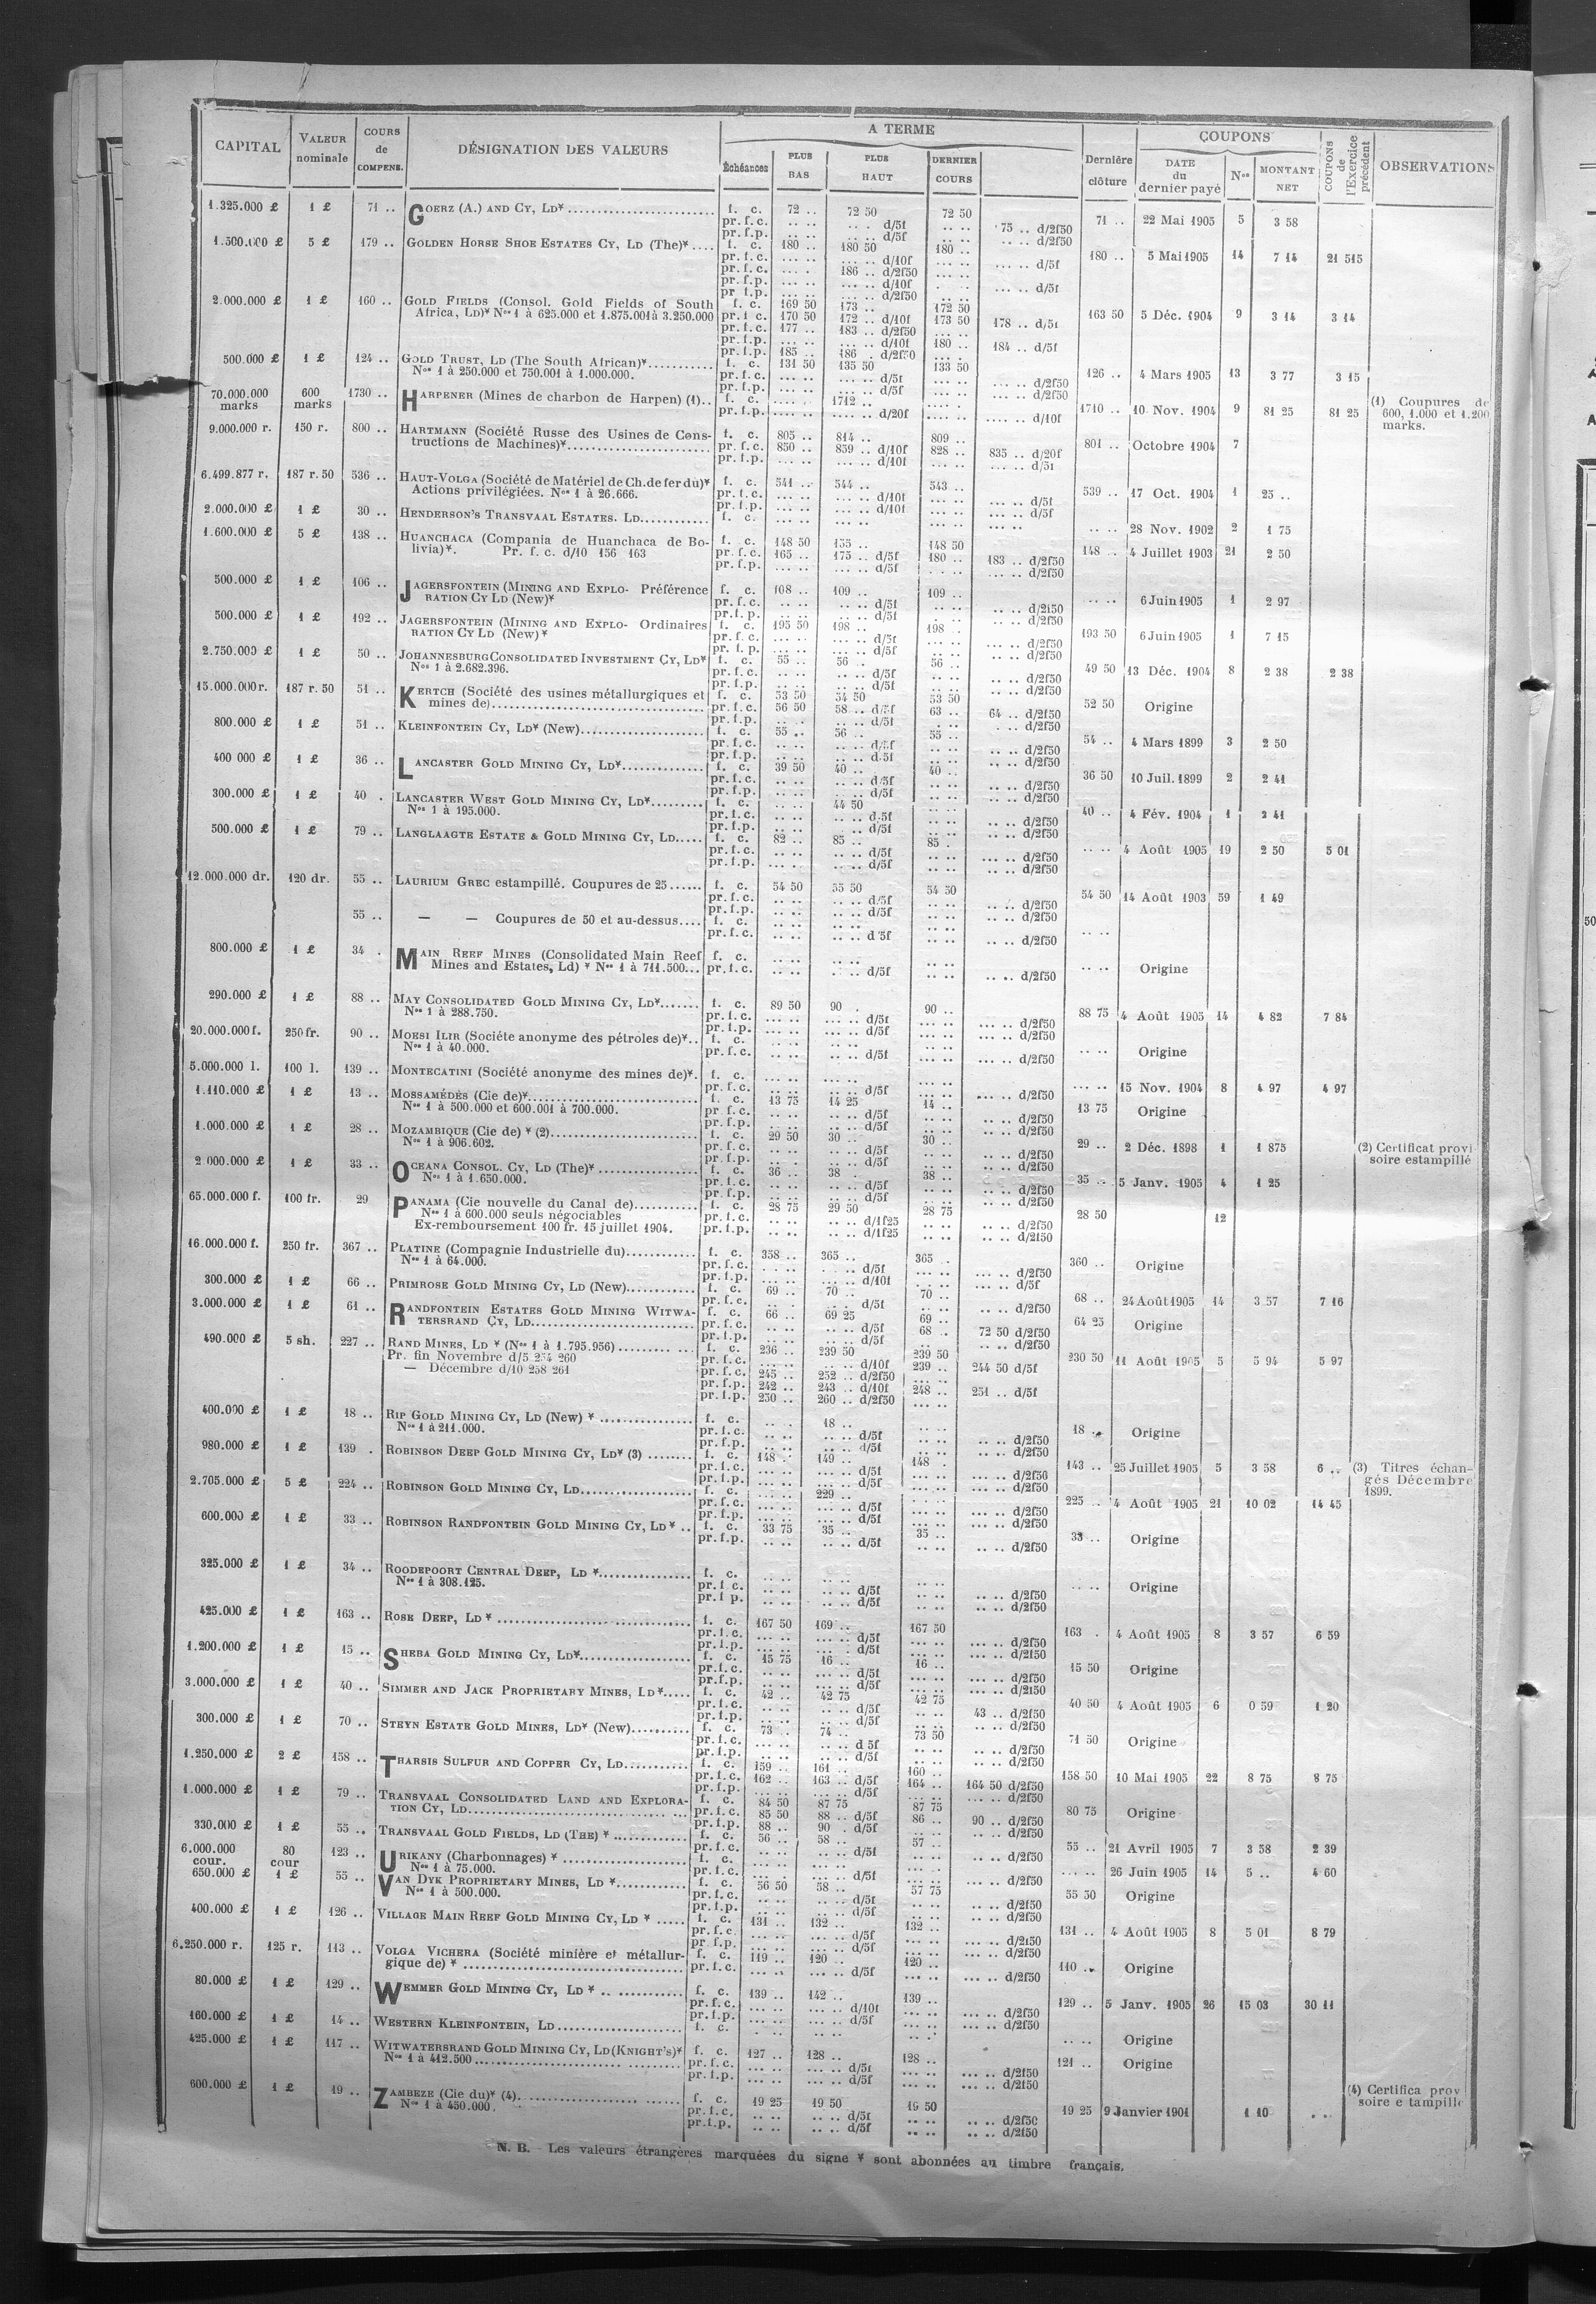 CAPITAL | VALEUR nominale | COURS de COMPENS. | DÉSIGNATION DES VALEURS | A TERME | Dernière clôture | COUPONS | COUPONS de l'Exercice précédent | OBSERVATIONS
Échéances | PLUS BAS | PLUS HAUT | DERNIER COURS | DATE du dernier payé | Nos | MONTANT NET
1.325.000 £ 1 £ 71 .. GOERZ (A.) AND CY, LD* f. c. 72 .. 72 50 72 50 71 .. 22 Mai 1905 5 3 58
pr. f. c. .. .. d/5f .. .. 75 .. d/2f50
pr. f. p. .. .. d/5f .. .. d/2f50
1.500.000 £ 5 £ 179 .. GOLDEN HORSE SHOE ESTATES CY, LD (The)* f. c. 180 .. 180 50 180 .. 180 .. 5 Mai 1905 14 7 14 21 515
pr. f. c. d/10f d/5f
pr. f. c. 186 .. d/2f50
pr. f. p. d/10f d/5f
pr f.p. d/2f50
2.000.000 £ 1 £ 160 .. GOLD FIELDS (Consol. Gold Fields of South f. c. 169 50 173 .. 172 50 163 50 5 Déc. 1904 9 3 14 3 14
Africa, LD)* Nos 1 à 625.000 et 1.875.001 à 3.250.000 pr. f. c. 170 50 172 .. d/10f 173 50 178 .. d/5f
pr. f. c. 177 .. 183 .. d/2f50
pr. f. p. d/10f 180 .. 184 .. d/5f
pr. f. p. 185 .. 186 . d/2f50
500.000 £ 1 £ 124 .. GOLD TRUST, LD (The South African)* f. c. 131 50 135 50 133 50 126 .. 4 Mars 1905 13 3 77 3 15
Nos 1 à 250.000 et 750.001 à 1.000.000. pr. f. c. d/5f d/2f50
pr. f. p. d/5f d/2f50
70.000.000 marks 600 marks 1730 .. HARPENER (Mines de charbon de Harpen) (1) f. c. 1712 .. 1710 .. 10 Nov. 1904 9 81 25 81 25 (1) Coupures de
600, 1.000 et 1.200
marks.
pr. f. p. d/20f d/10f
9.000.000 r. 150 r. 800 .. HARTMANN (Société Russe des Usines de Cons- f. c. 805 .. 814 .. 809 .. 801 .. Octobre 1904 7
tructions de Machines)* pr. f. c. 850 .. 859 .. d/10f 828 .. 835 .. d/20f
pr. f. p. d/10f d/5f
6.499.877 r. 187 r. 50 536 .. HAUT-VOLGA (Société de Matériel de Ch. de fer du)* f. c. 541 .. 544 .. 543 .. 539 .. 17 Oct. 1904 1 25 ..
Actions privilégiées. Nos 1 à 26.666. pr. f. c. d/10f d/5f
pr. f. p. d/10f d/5f
2.000.000 £ 1 £ 30 .. HENDERSON'S TRANSVAAL ESTATES. LD f. c. 28 Nov. 1902 2 1 75
1.600.000 £ 5 £ 138 .. HUANCHACA (Compania de Huanchaca de Bo- f. c. 148 50 155 .. 148 50 148 .. 4 Juillet 1903 21 2 50
livia)*. Pr. f. c. d/10 156 163 pr. f. c. 165 .. 175 .. d/5f 180 .. 183 .. d/2f50
pr. f. p. d/5f d/2f50
500.000 £ 1 £ 106 .. JAGERSFONTEIN (MINING AND EXPLO- Préférence f. c. 108 .. 109 .. 109 .. 6 Juin 1905 1 2 97
RATION CY LD (New)* pr. f. c. d/5f d/2f50
pr. f. p. d/5f d/2f50
500.000 £ 1 £ 192 .. JAGERSFONTEIN (MINING AND EXPLO- Ordinaires f. c. 195 50 198 .. 198 .. 193 50 6 Juin 1905 1 7 15
RATION CY LD (New)* pr. f. c. d/5f d/2f50
pr. f. p. d/5f d/2f50
2.750.000 £ 1 £ 50 .. JOHANNESBURG CONSOLIDATED INVESTMENT CY, LD* f. c. 55 .. 56 .. 56 .. 49 50 13 Déc. 1904 8 2 38 2 38
Nos 1 à 2.682.396. pr. f. c. d/5f d/2f50
pr. f. p. d/5f d/2f50
15.000.000 r. 187 r. 50 51 .. KERTCH (Société des usines métallurgiques et f. c. 53 50 54 50 53 50 52 50 Origine
mines de) pr. f. c. 56 50 58 .. d/5f 63 .. 64 .. d/2f50
pr. f. p. d/5f d/2f50
800.000 £ 1 £ 51 .. KLEINFONTEIN CY, LD* (New) f. c. 55 .. 56 .. 55 .. 54 .. 4 Mars 1899 3 2 50
pr. f. c. d/5f d/2f50
pr. f. p. d/5f d/2f50
400 000 £ 1 £ 36 .. LANCASTER GOLD MINING CY, LD* f. c. 39 50 40 .. 40 .. 36 50 10 Juil. 1899 2 2 41
pr. f. c. d/5f d/2f50
pr. f. p. d/5f d/2f50
300.000 £ 1 £ 40 . LANCASTER WEST GOLD MINING CY, LD* f. c. 44 50 40 .. 4 Fév. 1904 1 2 41
Nos 1 à 195.000. pr. f. c. d/5f d/2f50
pr. f. p. d/5f d/2f50
500.000 £ 1 £ 79 .. LANGLAAGTE ESTATE & GOLD MINING CY, LD f. c. 82 .. 85 .. 85 . 4 Août 1905 19 2 50 5 01
pr. f. c. d/5f d/2f50
pr. f. p. d/5f d/2f50
12.000.000 dr. 120 dr. 55 .. LAURIUM GREC estampillé. Coupures de 25 f. c. 54 50 55 50 54 50 54 50 14 Août 1903 59 1 49
pr. f. c. d/5f d/2f50
pr. f. p. d/5f d/2f50
55 .. — — Coupures de 50 et au-dessus f. c.
pr. f. c. d/5f d/2f50
800.000 £ 1 £ 34 . MAIN REEF MINES (Consolidated Main Reef f. c. Origine
Mines and Estates, Ld) * Nos 1 à 711.500 pr. f. c. d/5f d/2f50
290.000 £ 1 £ 88 .. MAY CONSOLIDATED GOLD MINING CY, LD* f. c. 89 50 90 . 90 .. 88 75 4 Août 1905 14 4 82 7 84
Nos 1 à 288.750. pr. f. c. d/5f d/2f50
pr. f. p. d/5f d/2f50
20.000.000 f. 250 fr. 90 .. MOESI ILIR (Sociéte anonyme des pétroles de)* f. c. Origine
Nos 1 à 40.000. pr. f. c. d/5f d/2f50
5.000.000 l. 100 l. 139 .. MONTECATINI (Société anonyme des mines de)* f. c. 15 Nov. 1904 8 4 97 4 97
pr. f. c. d/5f d/2f50
1.110.000 £ 1 £ 13 .. MOSSAMÉDÈS (Cie de)* f. c. 13 75 14 25 14 .. 13 75 Origine
Nos 1 à 500.000 et 600.001 à 700.000. pr. f. c. d/5f d/2f50
pr. f. p. d/5f d/2f50
1.000.000 £ 1 £ 28 .. MOZAMBIQUE (Cie de) * (2) f. c. 29 50 30 .. 30 .. 29 .. 2 Déc. 1898 1 1 875 (2) Certificat provi
soire estampillé
Nos 1 à 906.602. pr. f. c. d/5f d/2f50
pr. f. p. d/5f d/2f50
2.000.000 £ 1 £ 33 .. OCEANA CONSOL. CY, LD (The)* f. c. 36 .. 38 .. 38 .. 35 .. 5 Janv. 1905 4 1 25
Nos 1 à 1.650.000. pr. f. c. d/5f d/2f50
pr. f. p. d/5f d/2f50
65.000.000 f. 100 fr. 29 PANAMA (Cie nouvelle du Canal de) f. c. 28 75 29 50 28 75 28 50 12
Nos 1 à 600.000 seuls négociables pr. f. c. d/1f25 d/2f50
Ex-remboursement 100 fr. 15 juillet 1904. pr. f. p. d/1f25 d/2f50
16.000.000 f. 250 fr. 367 .. PLATINE (Compagnie Industrielle du) f. c. 358 .. 365 .. 365 .. 360 .. Origine
Nos 1 à 64.000. pr. f. c. d/5f d/2f50
pr. f. p. d/10f d/5f
300.000 £ 1 £ 66 .. PRIMROSE GOLD MINING CY, LD (New) f. c. 69 .. 70 .. 70 .. 68 .. 24 Août 1905 14 3 57 7 16
pr. f. c. d/5f d/2f50
3.000.000 £ 1 £ 61 .. RANDFONTEIN ESTATES GOLD MINING WITWA- f. c. 66 .. 69 25 69 .. 64 25 Origine
TERSRAND CY, LD pr. f. c. d/5f 68 .. 72 50 d/2f50
pr. f. p. d/5f d/2f50
490.000 £ 5 sh. 227 .. RAND MINES, LD * (Nos 1 à 1.795.956) f. c. 236 .. 239 50 239 50 230 50 11 Août 1905 5 5 94 5 97
Pr. fin Novembre d/5 254 260 pr. f. c. d/10f 239 .. 244 50 d/5f
— Décembre d/10 258 261 pr. f. c. 245 .. 252 .. d/2f50
pr. f. p. 242 .. 243 .. d/10f 248 .. 251 .. d/5f
pr. f. p. 250 .. 260 .. d/2f50
400.000 £ 1 £ 18 .. RIP GOLD MINING CY, LD (New) * f. c. 18 .. 18 .. Origine
Nos 1 à 211.000. pr. f. c. d/5f d/2f50
pr. f. p. d/5f d/2f50
980.000 £ 1 £ 139 . ROBINSON DEEP GOLD MINING CY, LD* (3) f. c. 148 .. 149 .. 148 .. 143 .. 25 Juillet 1905 5 3 58 6 .. (3) Titres échan-
gés Décembre
1899.
pr. f. c. d/5f d/2f50
pr. f. p. d/5f d/2f50
2.705.000 £ 5 £ 224 .. ROBINSON GOLD MINING CY, LD f. c. 229 .. 225 .. 4 Août 1905 21 10 02 14 45
pr. f. c. d/5f d/2f50
pr. f. p. d/5f d/2f50
600.000 £ 1 £ 33 .. ROBINSON RANDFONTEIN GOLD MINING CY, LD * f. c. 33 75 35 .. 35 .. 33 .. Origine
pr. f. p. d/5f d/2f50
325.000 £ 1 £ 34 .. ROODEPOORT CENTRAL DEEP, LD * f. c. Origine
Nos 1 à 308.125. pr. f. c. d/5f d/2f50
pr. f. p. d/5f d/2f50
425.000 £ 1 £ 163 .. ROSE DEEP, LD * f. c. 167 50 169 .. 167 50 163 . 4 Août 1905 8 3 57 6 59
pr. f. c. d/5f d/2f50
pr. f. p. d/5f d/2f50
1.200.000 £ 1 £ 15 .. SHEBA GOLD MINING CY, LD* f. c. 15 75 16 .. 16 .. 15 50 Origine
pr. f. c. d/5f d/2f50
pr. f. p. d/5f d/2f50
3.000.000 £ 1 £ 40 .. SIMMER AND JACK PROPRIETARY MINES, LD* f. c. 42 .. 42 75 42 75 40 50 4 Août 1905 6 0 59 1 20
pr. f. c. d/5f 43 .. d/2f50
pr. f. p. d/5f d/2f50
300.000 £ 1 £ 70 .. STEYN ESTATE GOLD MINES, LD* (New) f. c. 73 74 .. 73 50 71 50 Origine
pr. f. c. d 5f d/2f50
pr. f. p. d/5f d/2f50
1.250.000 £ 2 £ 158 .. THARSIS SULFUR AND COPPER CY, LD f. c. 159 .. 161 .. 160 .. 158 50 10 Mai 1905 22 8 75 8 75
pr. f. c. 162 .. 163 .. d/5f 164 .. 164 50 d/2f50
pr. f. p. d/5f d/2f50
1.000.000 £ 1 £ 79 .. TRANSVAAL CONSOLIDATED LAND AND EXPLORA- f. c. 84 50 87 75 87 75 80 75 Origine
TION CY, LD pr. f. c. 85 50 88 .. d/5f 86 .. 90 .. d/2f50
pr. f. p. 88 .. 90 . d/5f d/2f50
330.000 £ 1 £ 55 .. TRANSVAAL GOLD FIELDS, LD (THE) * f. c. 56 .. 58 .. 57 .. 55 .. 21 Avril 1905 7 3 58 2 39
pr. f. c. d/5f d/2f50
6.000.000 cour. 80 cour 123 .. URIKANY (Charbonnages) * f. c. 26 Juin 1905 14 5 .. 4 60
Nos 1 à 75.000. pr. f. c. d/5f d/2f50
650.000 £ 1 £ 55 .. VAN DYK PROPRIETARY MINES, LD * f. c. 56 50 58 .. 57 75 55 50 Origine
Nos 1 à 500.000. pr. f. c. d/5f d/2f50
pr. f. p. d/5f d/2f50
400.000 £ 1 £ 126 .. VILLAGE MAIN REEF GOLD MINING CY, LD * f. c. 131 .. 132 .. 132 .. 131 .. 4 Août 1905 8 5 01 8 79
pr. f. c. d/5f d/2f50
pr. f. p. d/5f d/2f50
6.250.000 r. 125 r. 113 .. VOLGA VICHERA (Société minière et métallur- f. c. 119 .. 120 .. 120 .. 110 .. Origine
gique de) * pr. f. c. d/5f d/2f50
80.000 £ 1 £ 129 .. WEMMER GOLD MINING CY, LD * f. c. 139 .. 142 .. 139 .. 129 .. 5 Janv. 1905 26 15 03 30 11
pr. f. c. d/10f d/2f50
pr. f. p. d/5f d/2f50
160.000 £ 1 £ 14 .. WESTERN KLEINFONTEIN, LD f. c. Origine
425.000 £ 1 £ 117 .. WITWATERSRAND GOLD MINING CY, LD (KNIGHT'S)* f. c. 127 .. 128 .. 128 .. 121 .. Origine
Nos 1 à 412.500 pr. f. c. d/5f d/2f50
pr. f. p. d/5f d/2f50
600.000 £ 1 £ 19 .. ZAMBEZE (Cie du)* (4) f. c. 19 25 19 50 19 50 19 25 9 Janvier 1901 1 10 (4) Certifica prov
soire e tampillé
Nos 1 à 450.000. pr. f. c. d/5f d/2f50
pr. f. p. d/5f d/2f50
N. B. - Les valeurs étrangères marquées du signe * sont abonnées au timbre français.